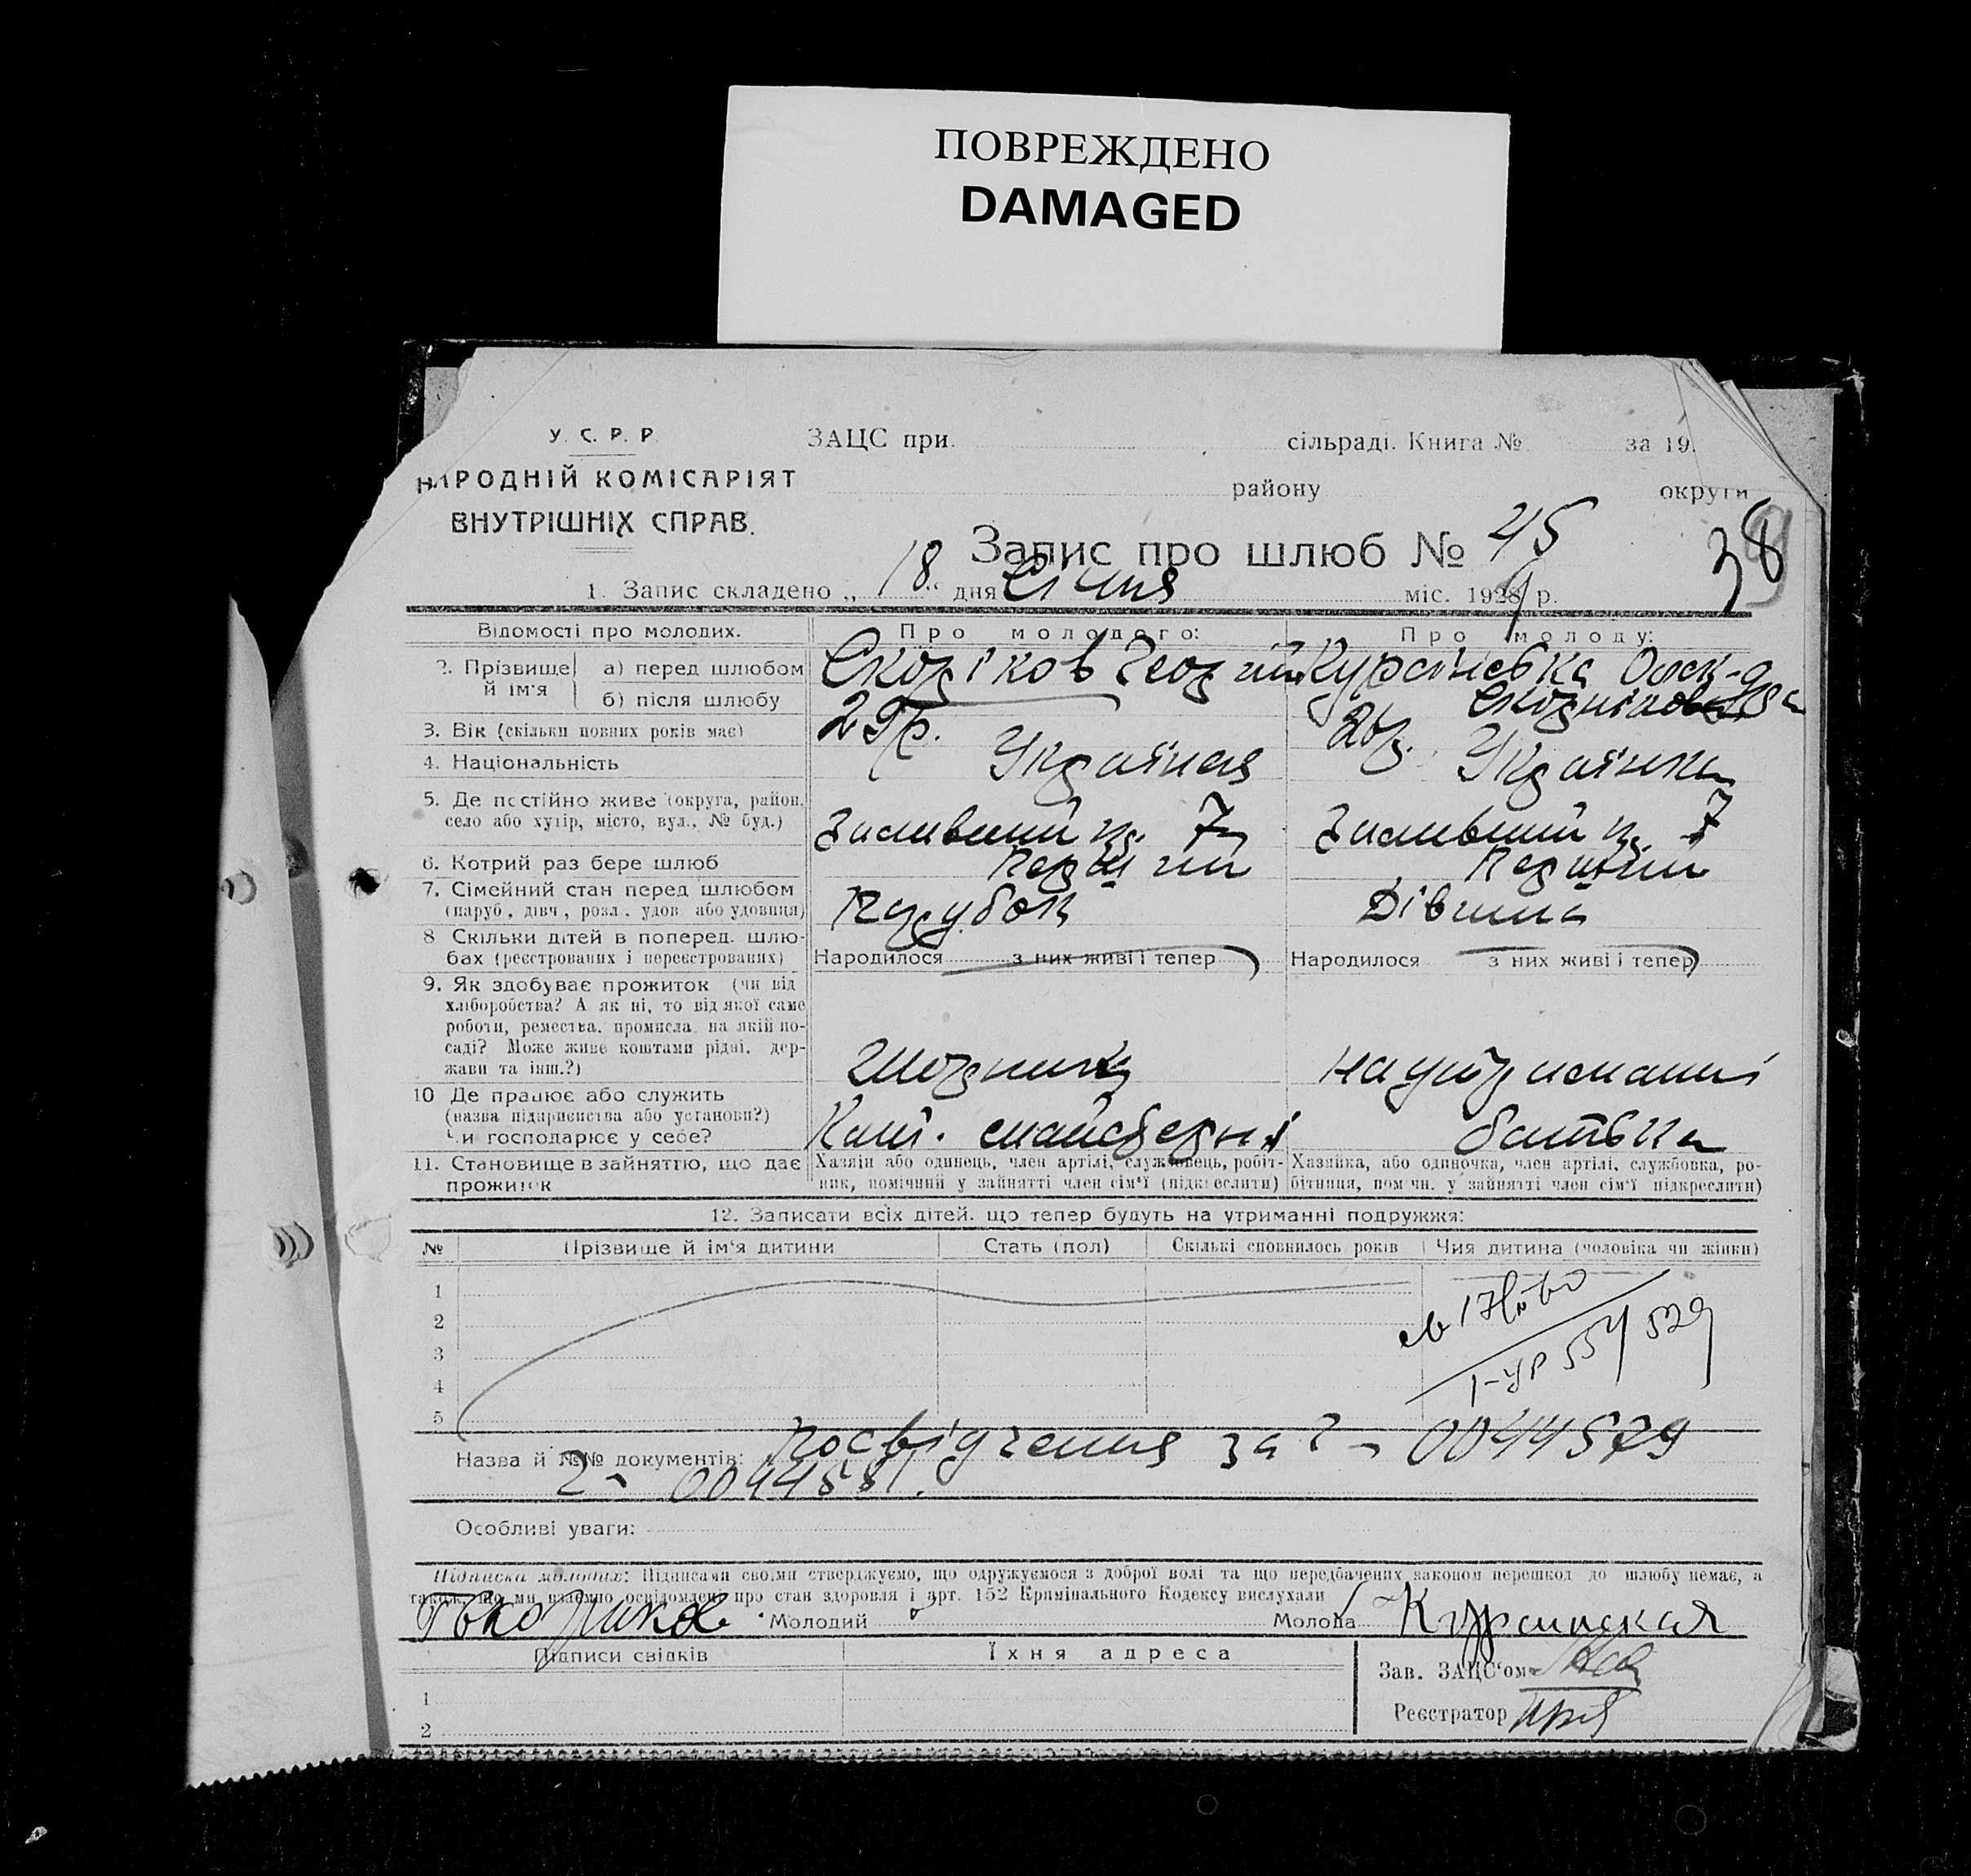 ПОВРЕЖДЕНО
DAMAGED
У. С. Р. Р.
НАРОДНІЙ КОМІСАРІЯТ
ВНУТРІШНІХ СПРАВ.
ЗАЦС при сільраді. Книга № за 19
району округи
Запис про шлюб № 45
38
1. Запис складено „ 18 “ дня Січня міс. 1929 р.
Відомості про молодих. Про молодого: Про молоду:
2. Прізвище й ім'я
а) перед шлюбом Скоріков Георгій
б) після шлюбу
3. Вік (скільки повних років має) 29р. 26р.
4. Національність Українець Українка
5. Де постійно живе (округа, район,
село або хутір, місто, вул., № буд.) 7 7
6. Котрий раз бере шлюб Перший Перший
7. Сімейний стан перед шлюбом
(паруб., дівч., розл. удов. або удовиця) Парубок Дівчина
8 Скільки дітей в поперед. шлю-
бах (реєстрованих і нереєстрованих) Народилося з них живі і тепер Народилося з них живі і тепер
9. Як здобуває прожиток (чи від
хліборобства? А як ні, то від якої саме
роботи, ремества, промисла, на якій по-
саді? Може живе коштами рідні, дер-
жави та інш.?) на утриманні
10 Де працює або служить
(назва підприємства або установи?)
Чи господарює у себе? батька
11. Становище в зайняттю, що дає
прожиток
Хазяїн або одинець, член артілі, службовець, робіт-
ник, помічний у зайнятті член сім'ї (підкреслити)
Хазяйка, або одиночка, член артілі, службовка, ро-
бітниця, помічн. у зайнятті член сім'ї підкреслити)
12. Записати всіх дітей, що тепер будуть на утриманні подружжя:
№ Прізвище й ім'я дитини Стать (пол) Скількі сповнилось років Чия дитина (чоловіка чи жінки)
1
2
3
4
5
Назва й №№ документів: Посвідчення за 0044579
2- 0044581.
Особливі уваги:
Підписка молодих: Підписами своїми стверджуємо, що одружуємося з доброї волі та що передбачених законом перешкод до шлюбу немає, а
також, що ми взаємно освідомлені про стан здоровля і арт. 152 Кримінального Кодексу вислухали
Молодий Молода Курсинская
Підписи свідків Їхня адреса
1
2
Зав. ЗАЦС'ом
Реєстратор